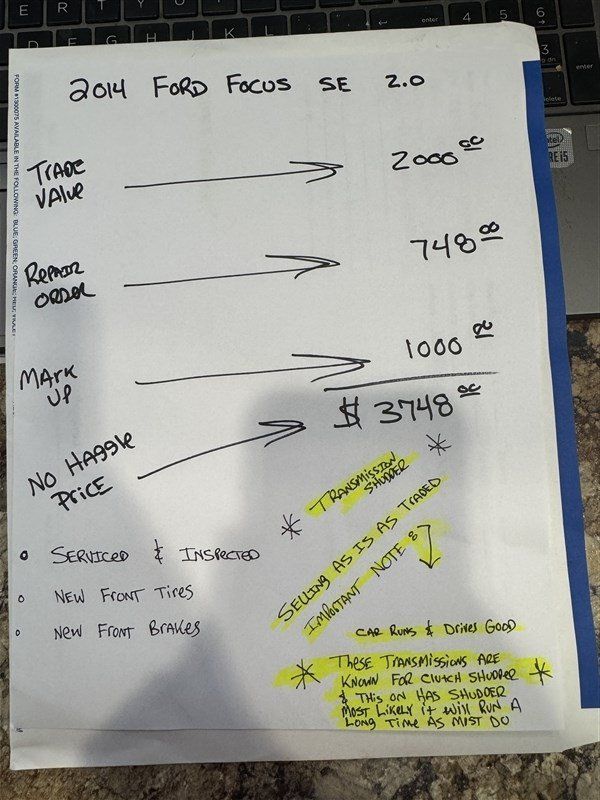 2014 FORD FOCUS SE 2.0
TRADE
VALUE
2000 00
REPAIR
ORDER
748 00
MARK
UP
1000 00
NO HAGGLE
PRICE
$ 3748 00
* TRANSMISSION
SHUDDER *
SELLING AS IS AS TRADED
IMPORTANT NOTE :
SERVICED & INSPECTED
NEW FRONT TIRES
NEW FRONT BRAKES
CAR RUNS & DRIVES GOOD
* THESE TRANSMISSIONS ARE
KNOWN FOR CLUTCH SHUDDER *
& THIS ON HAS SHUDDER
MOST LIKELY IT WILL RUN A
LONG TIME AS MOST DO
FORM #1300075 AVAILABLE IN THE FOLLOWING: BLUE, GREEN, ORANGE,
intel
enter
enter
4
5
6
3
E
R
T
Y
U
O
P
D